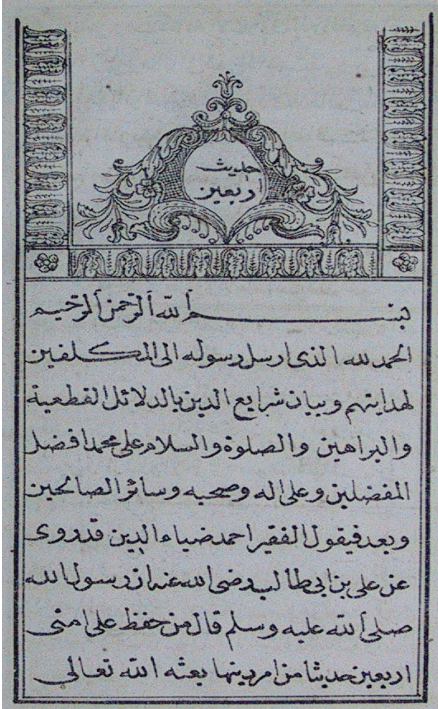 حديث
اربعين
بسم الله الرحمن الرحيم
الحمد لله الذى ارسل رسوله الى المكلفين
لهدايتهم وبيان شرايع الدين بالدلائل القطعية
والبراهين والصلوة والسلام على محمد افضل
المفضلين وعلى اله وصحبه وسائر الصالحين
وبعد فيقول الفقير احمد ضياء الدين قد روى
عن على بن ابى طالب رضى الله عنه ان رسول الله
صلى الله عليه وسلم قال من حفظ على امتى
اربعين حديثا من امر دينها بعثه الله تعالى